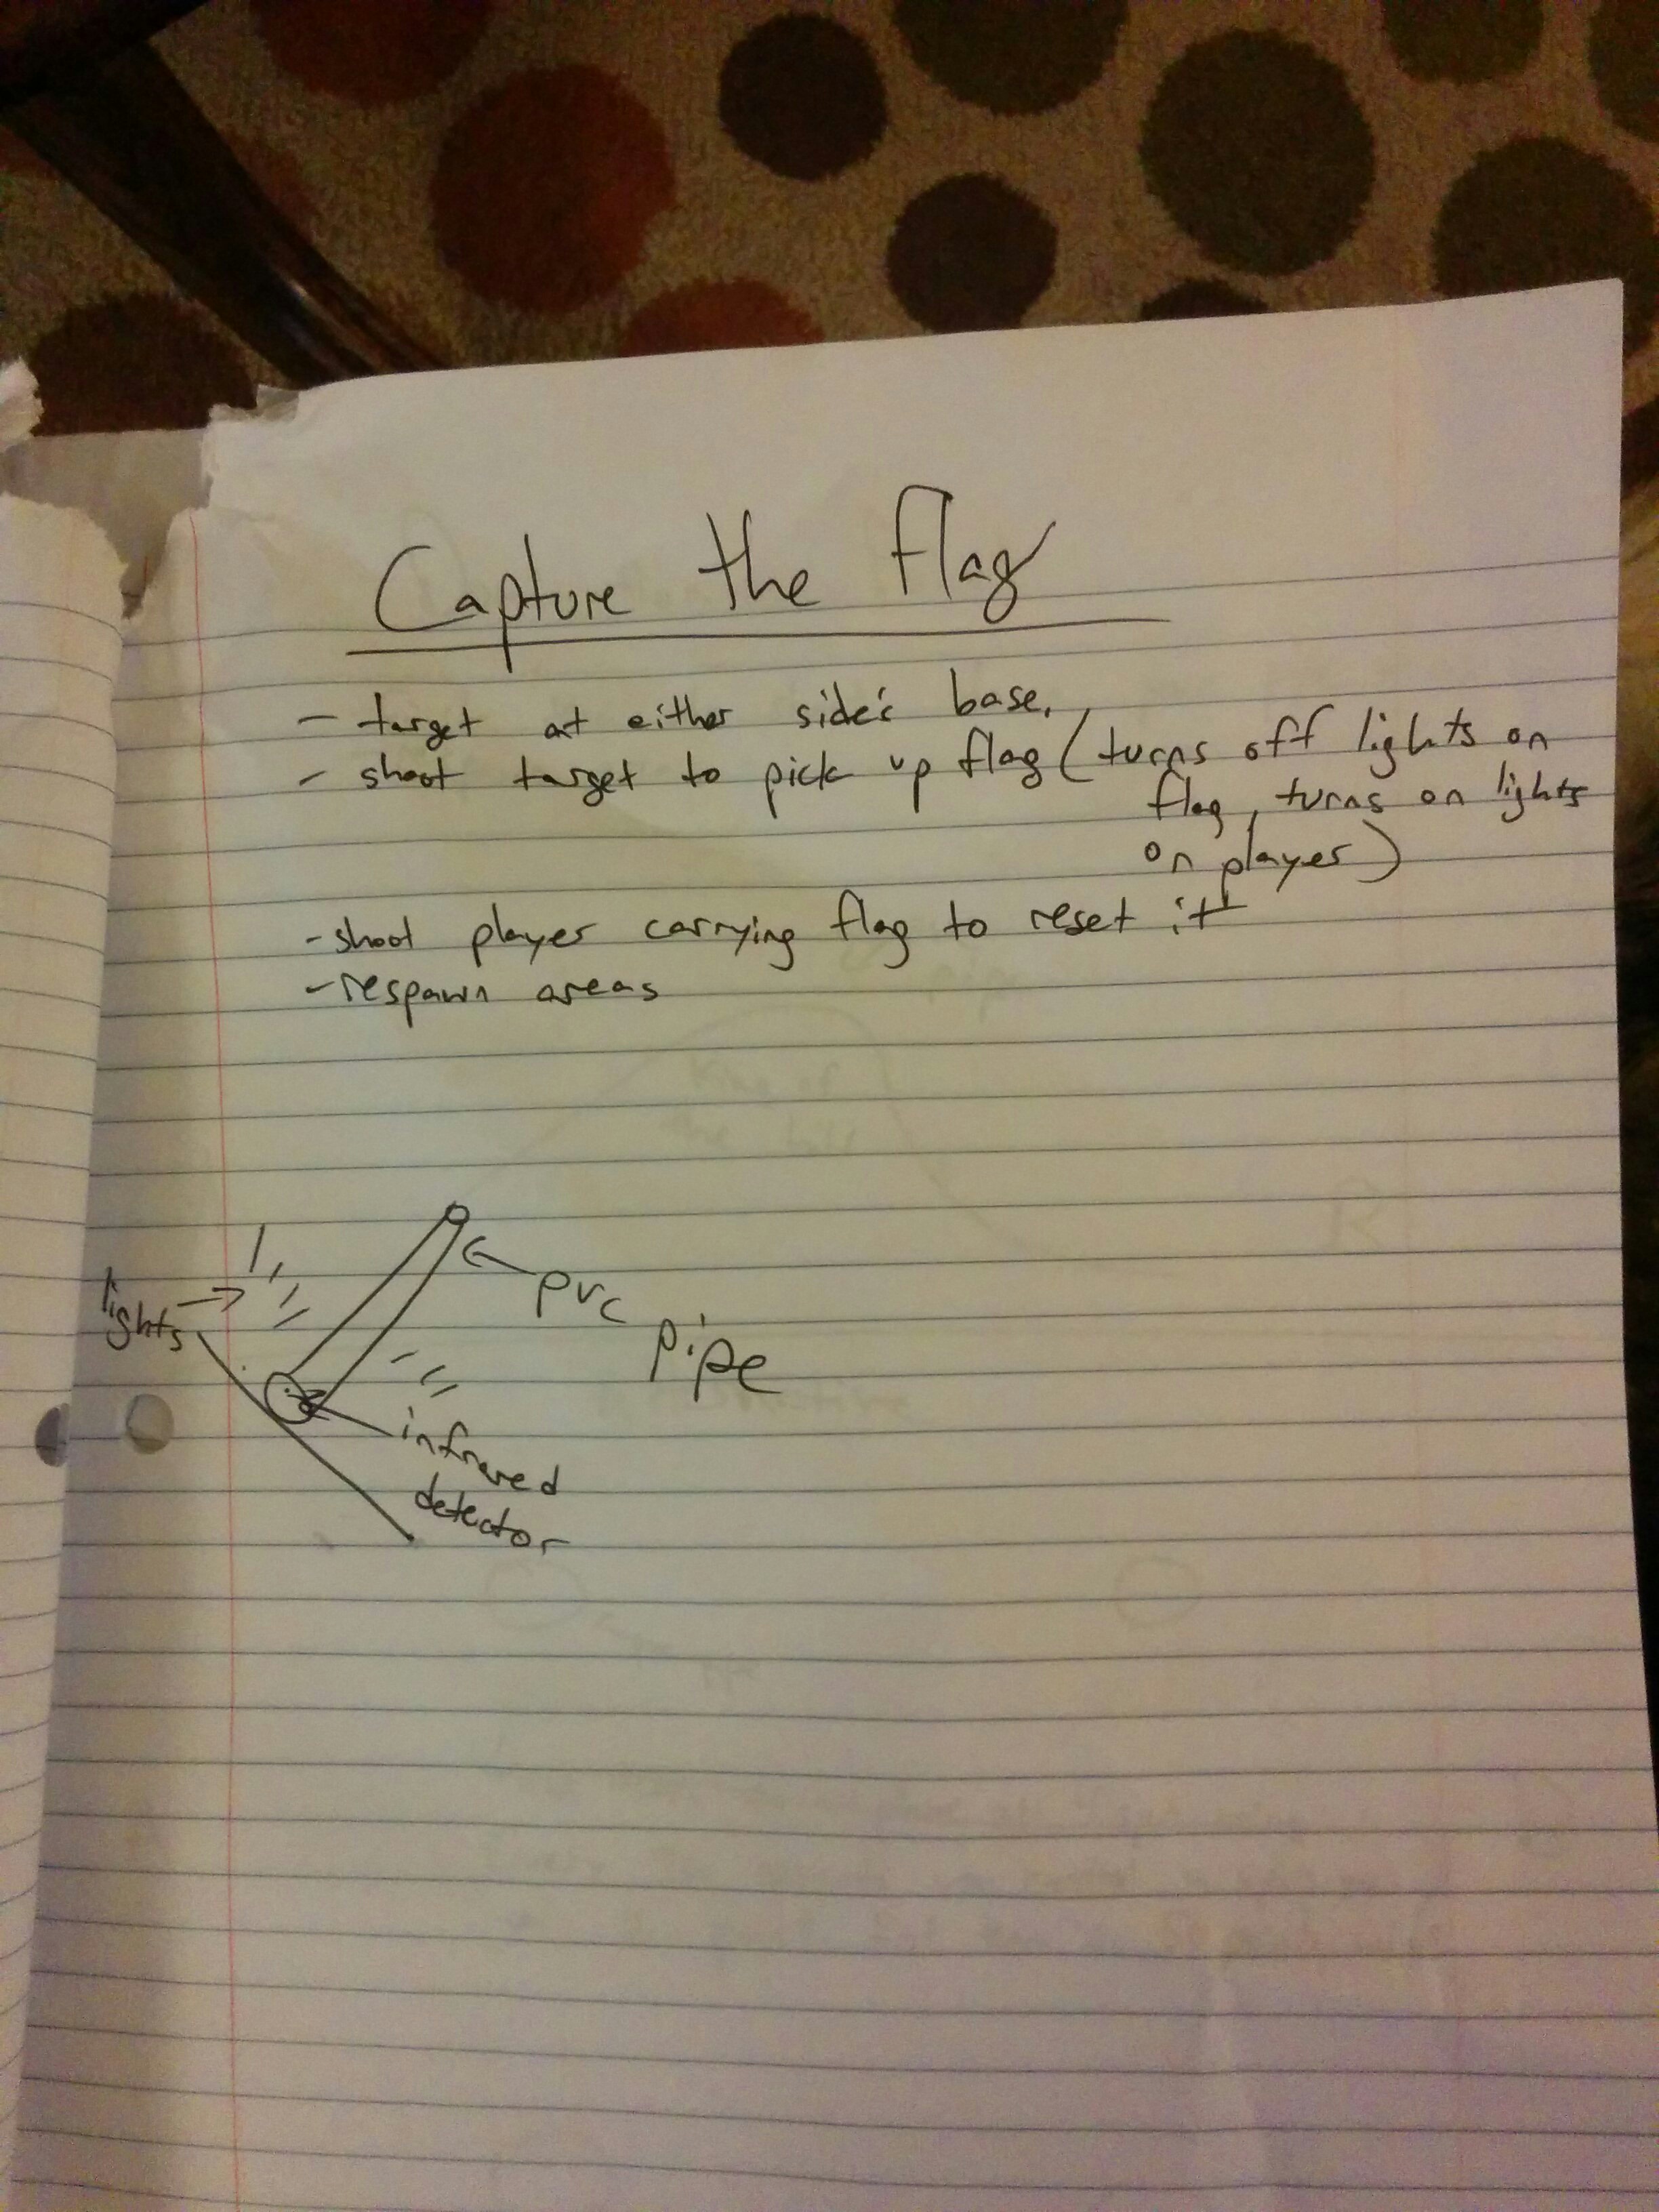 Capture the flag
- target at either side's base.
- shoot target to pick up flag (turns off lights on
flag, turns on lights
on player)
- shoot player carrying flag to reset it
- respawn areas
lights
pvc
pipe
infrared
detector